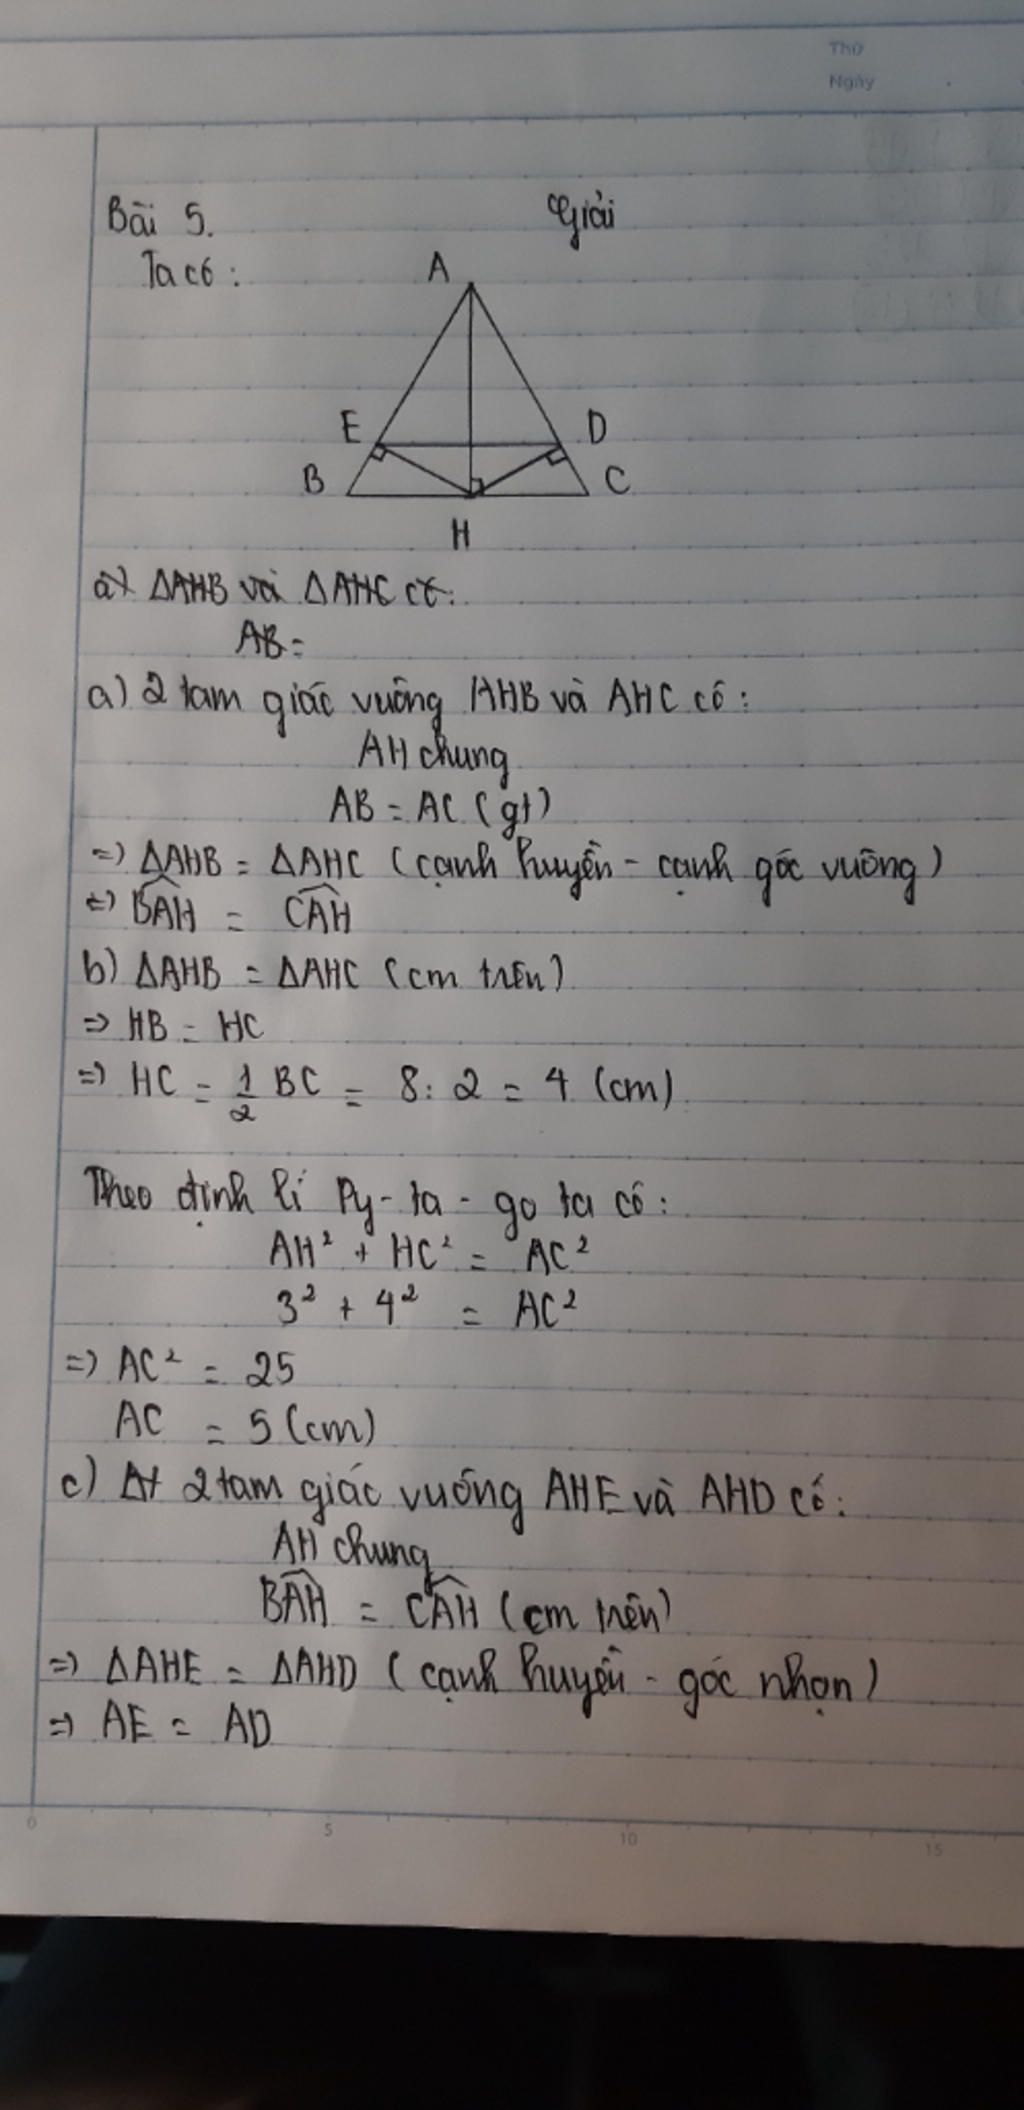 Thứ
Ngày
Bài 5.
Giải
Ta có :
A
E
D
B
C
H
a) ΔAHB và ΔAHC có:
AB =
a) 2 tam giác vuông AHB và AHC có :
AH chung
AB = AC (gt)
=) ΔAHB = ΔAHC (cạnh huyền - cạnh góc vuông)
=) BAH = CAH
b) ΔAHB = ΔAHC (cm trên)
=> HB = HC
=) HC = 1/2 BC = 8 : 2 = 4 (cm)
Theo định lí Py - ta - go ta có :
AH² + HC² = AC²
3² + 4² = AC²
=) AC² = 25
AC = 5 (cm)
c) 2 tam giác vuông AHE và AHD có :
AH chung
BAH = CAH (cm trên)
=) ΔAHE = ΔAHD (cạnh huyền - góc nhọn)
=) AE = AD
0 5 10 15